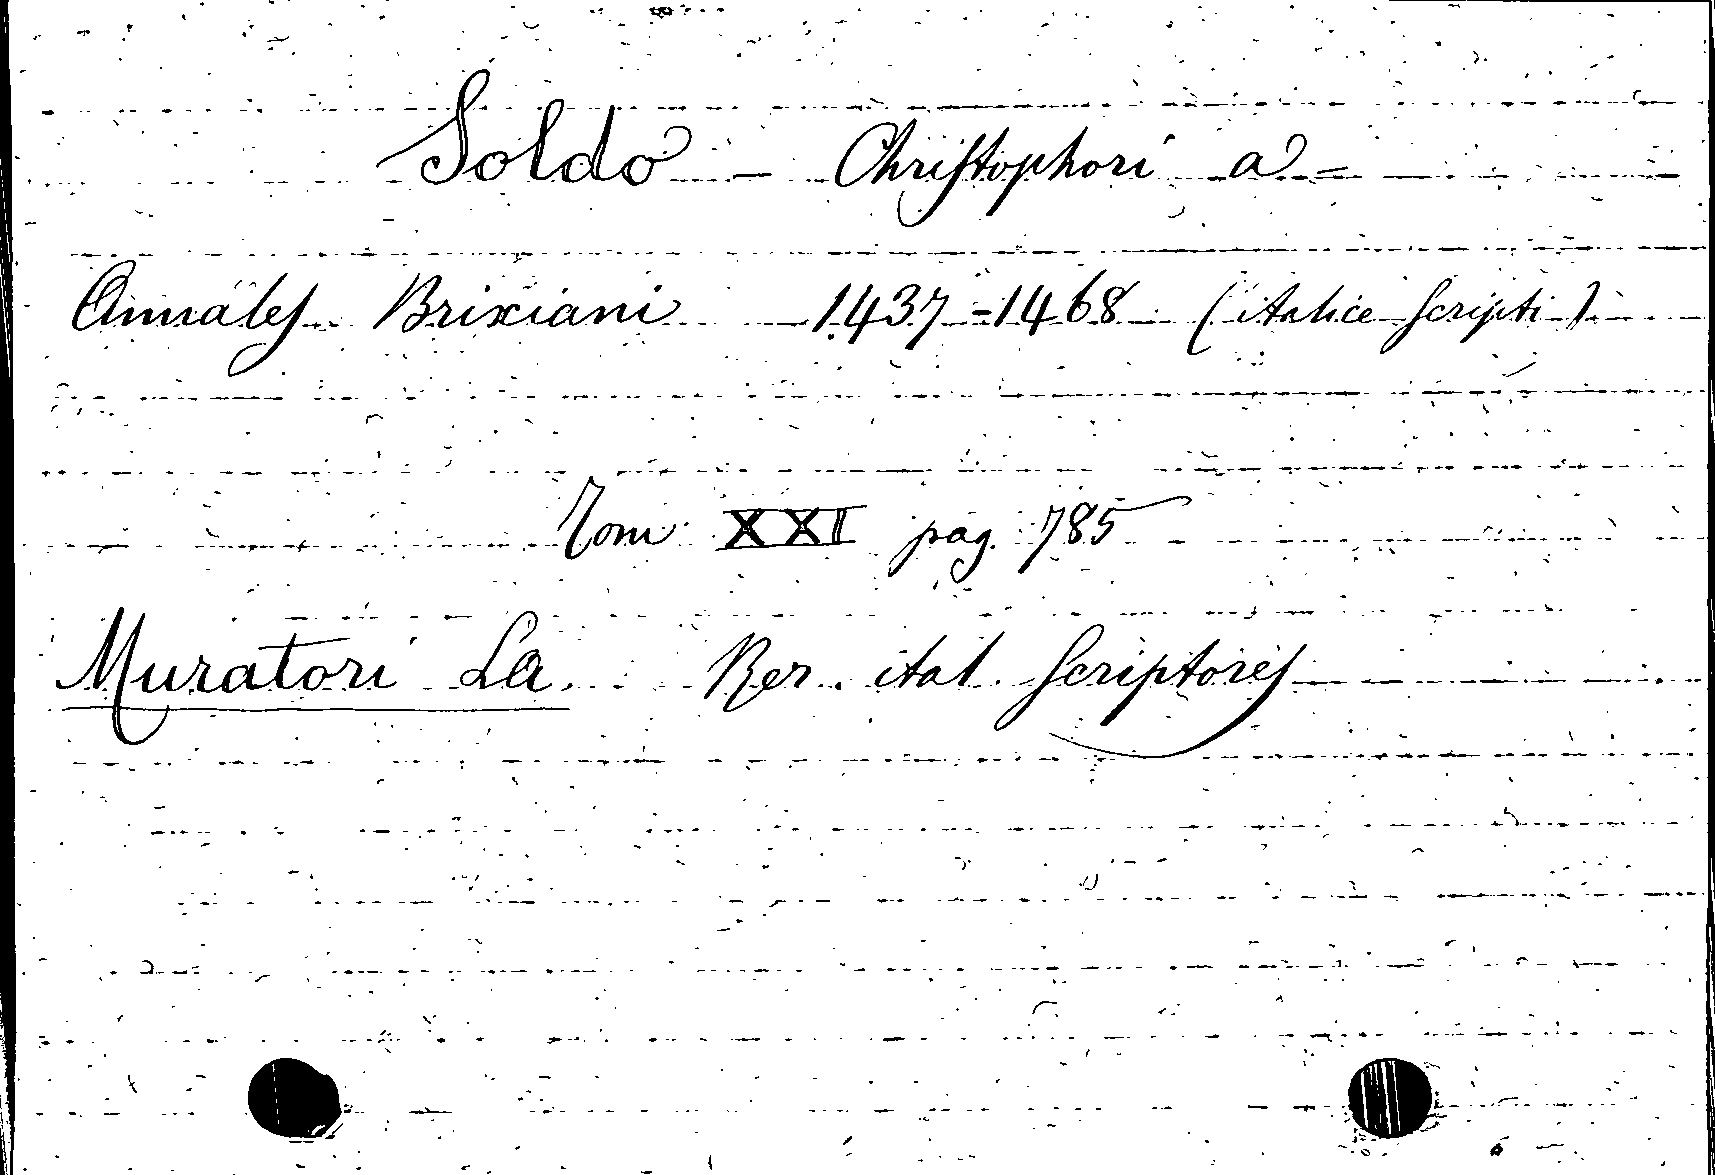 Soldo - Christophori a -
Annales Brixiani 1437-1468 (italice scripti)
Tom XXI pag. 785
Muratori La. Rer. ital. scriptores